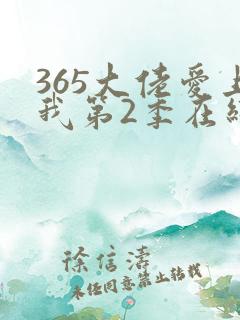 365大佬爱上
我第2季在线
徐信涛
未经同意禁止转载